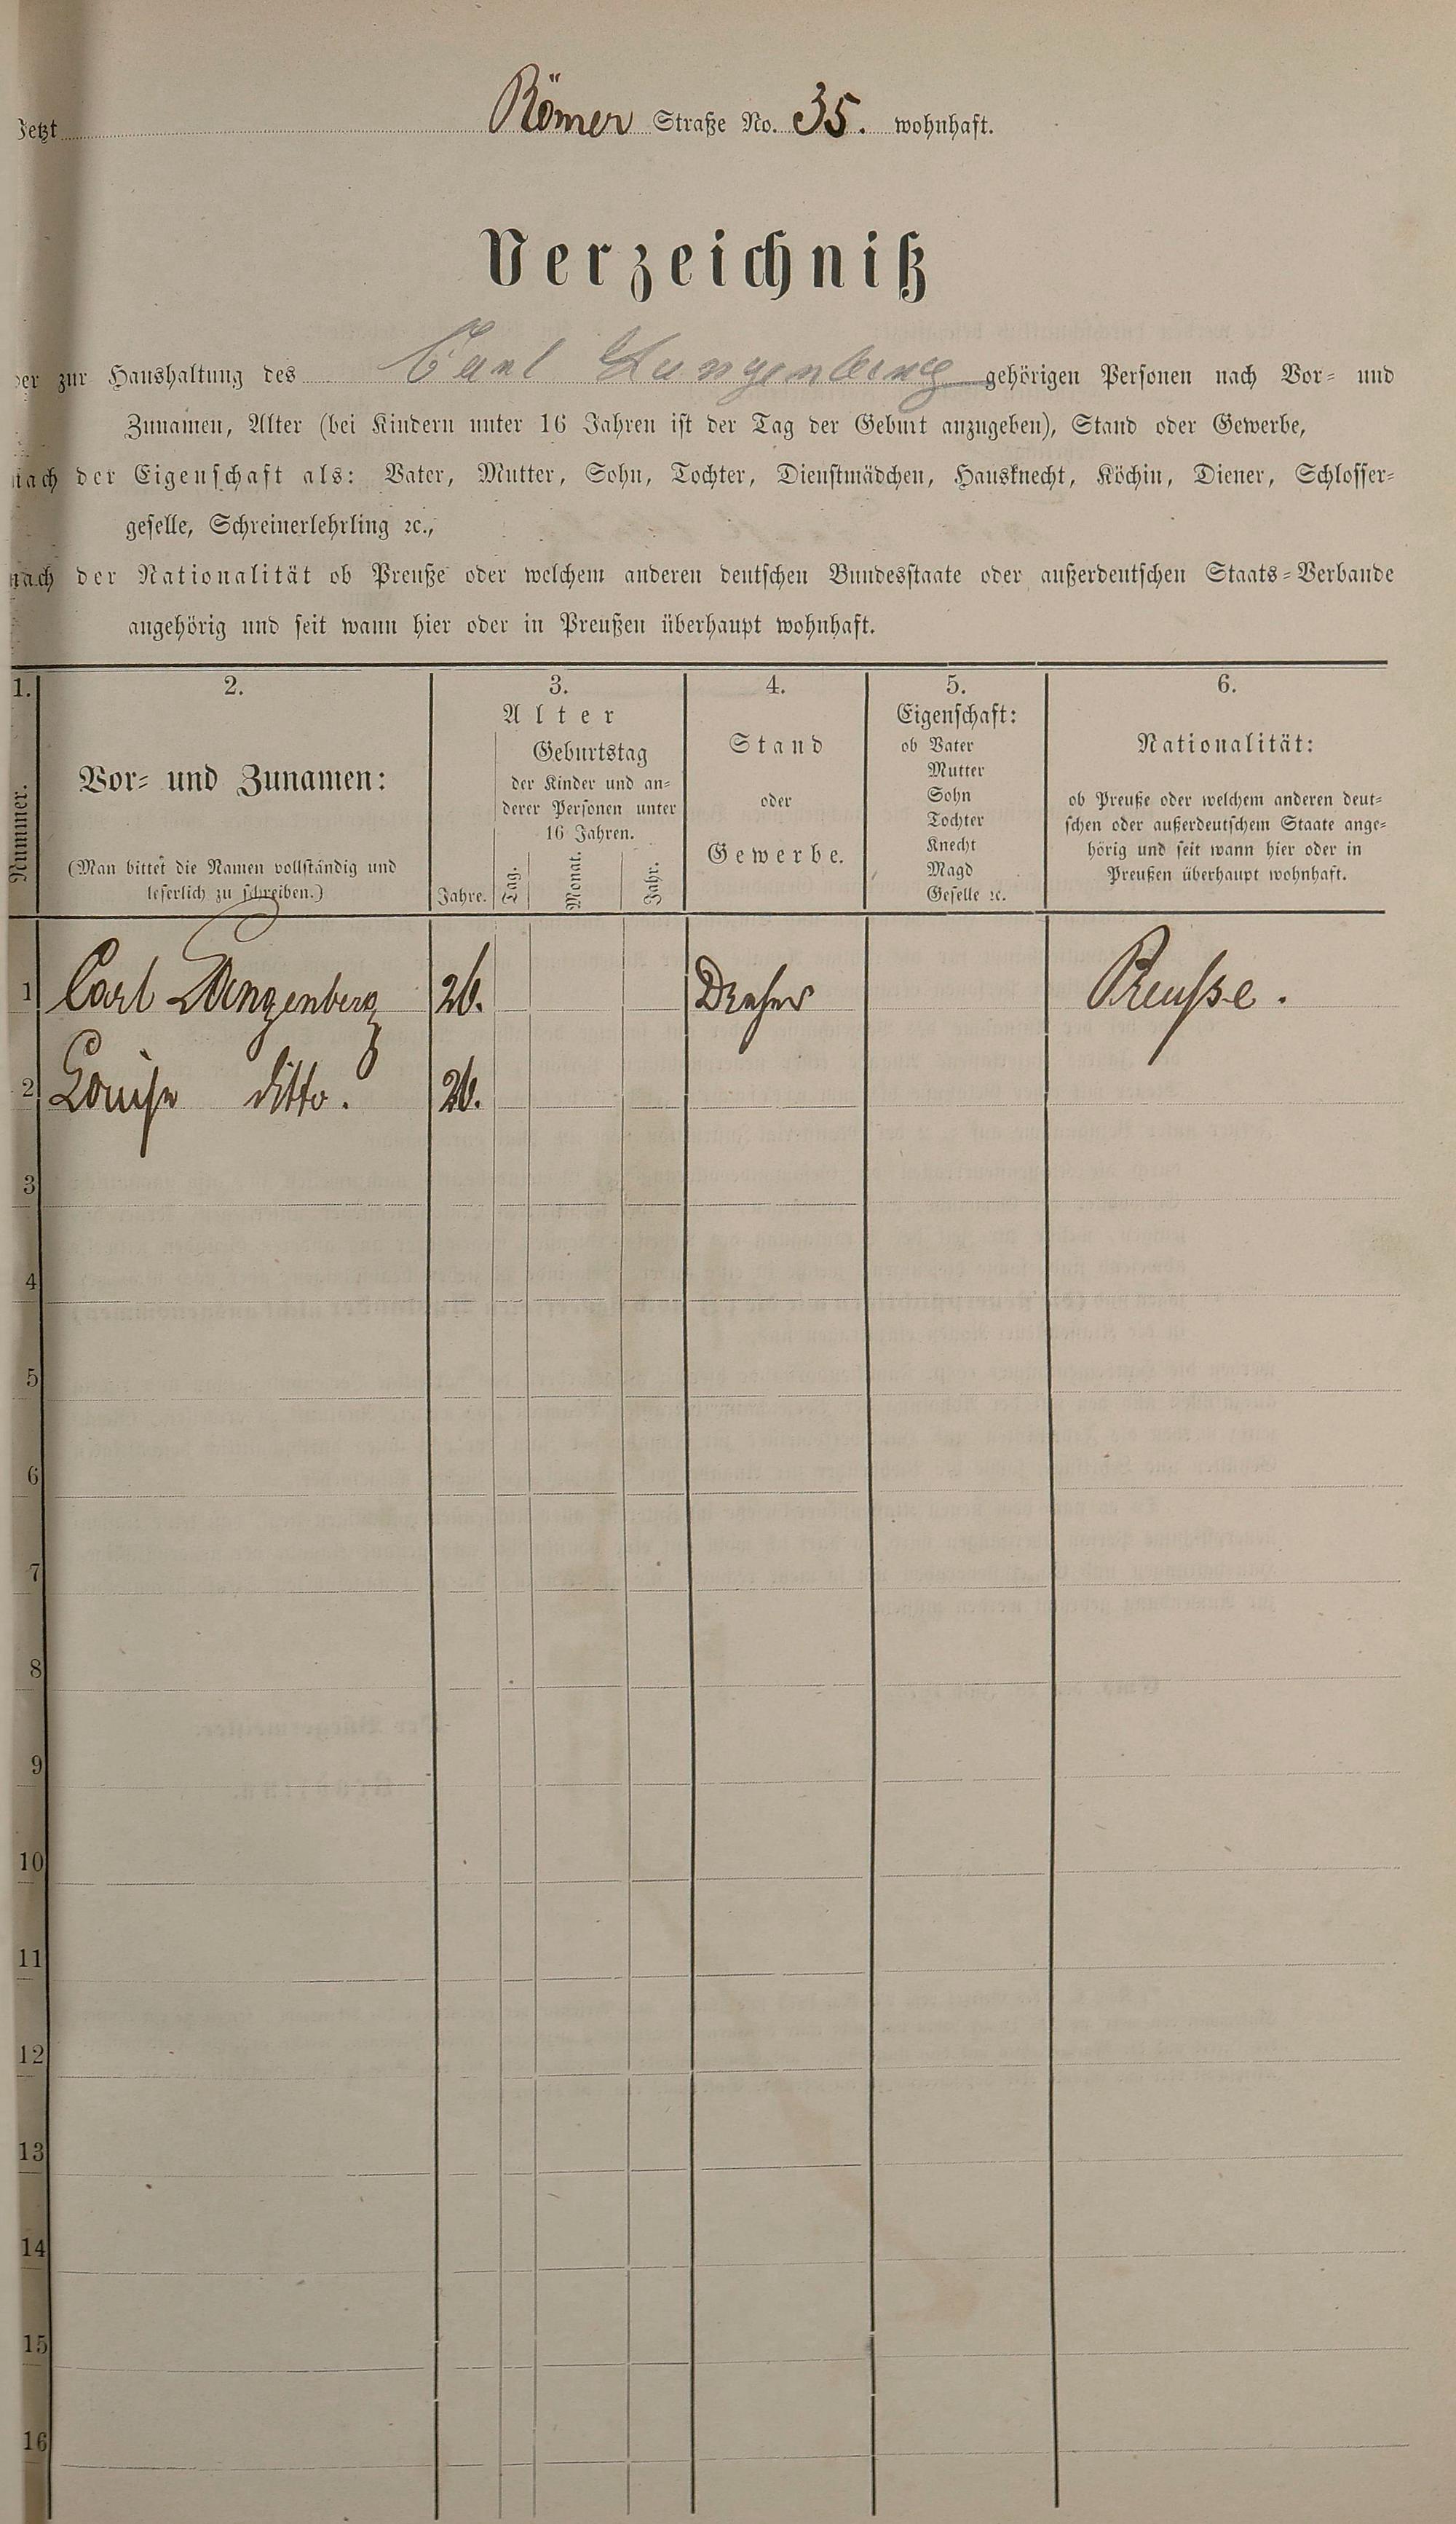 Jetzt Römer Straße No. 35. wohnhaft.
Verzeichniß
der zur Haushaltung des Carl gehörigen Personen nach Vor- und
Zunamen, Alter (bei Kindern unter 16 Jahren ist der Tag der Geburt anzugeben), Stand oder Gewerbe,
nach der Eigenschaft als: Vater, Mutter, Sohn, Tochter, Dienstmädchen, Hausknecht, Köchin, Diener, Schlosser-
geselle, Schreinerlehrling ꝛc.,
nach der Nationalität ob Preuße oder welchem anderen deutschen Bundesstaate oder außerdeutschen Staats-Verbande
angehörig und seit wann hier oder in Preußen überhaupt wohnhaft.
1.
Nummer.
2.
Vor- und Zunamen:
(Man bittet die Namen vollständig und
leserlich zu schreiben.)
3.
Alter
Jahre.
Geburtstag
der Kinder und an-
derer Personen unter
16 Jahren.
Tag.
Monat.
Jahr.
4.
Stand
oder
Gewerbe.
5.
Eigenschaft:
ob Vater
Mutter
Sohn
Tochter
Knecht
Magd
Geselle ꝛc.
6.
Nationalität:
ob Preuße oder welchem anderen deut-
schen oder außerdeutschem Staate ange-
hörig und seit wann hier oder in
Preußen überhaupt wohnhaft.
1 Carl 26. Dreher Preusse.
2 Louise ditto. 26.
3
4
5
6
7
8
9
10
11
12
13
14
15
16